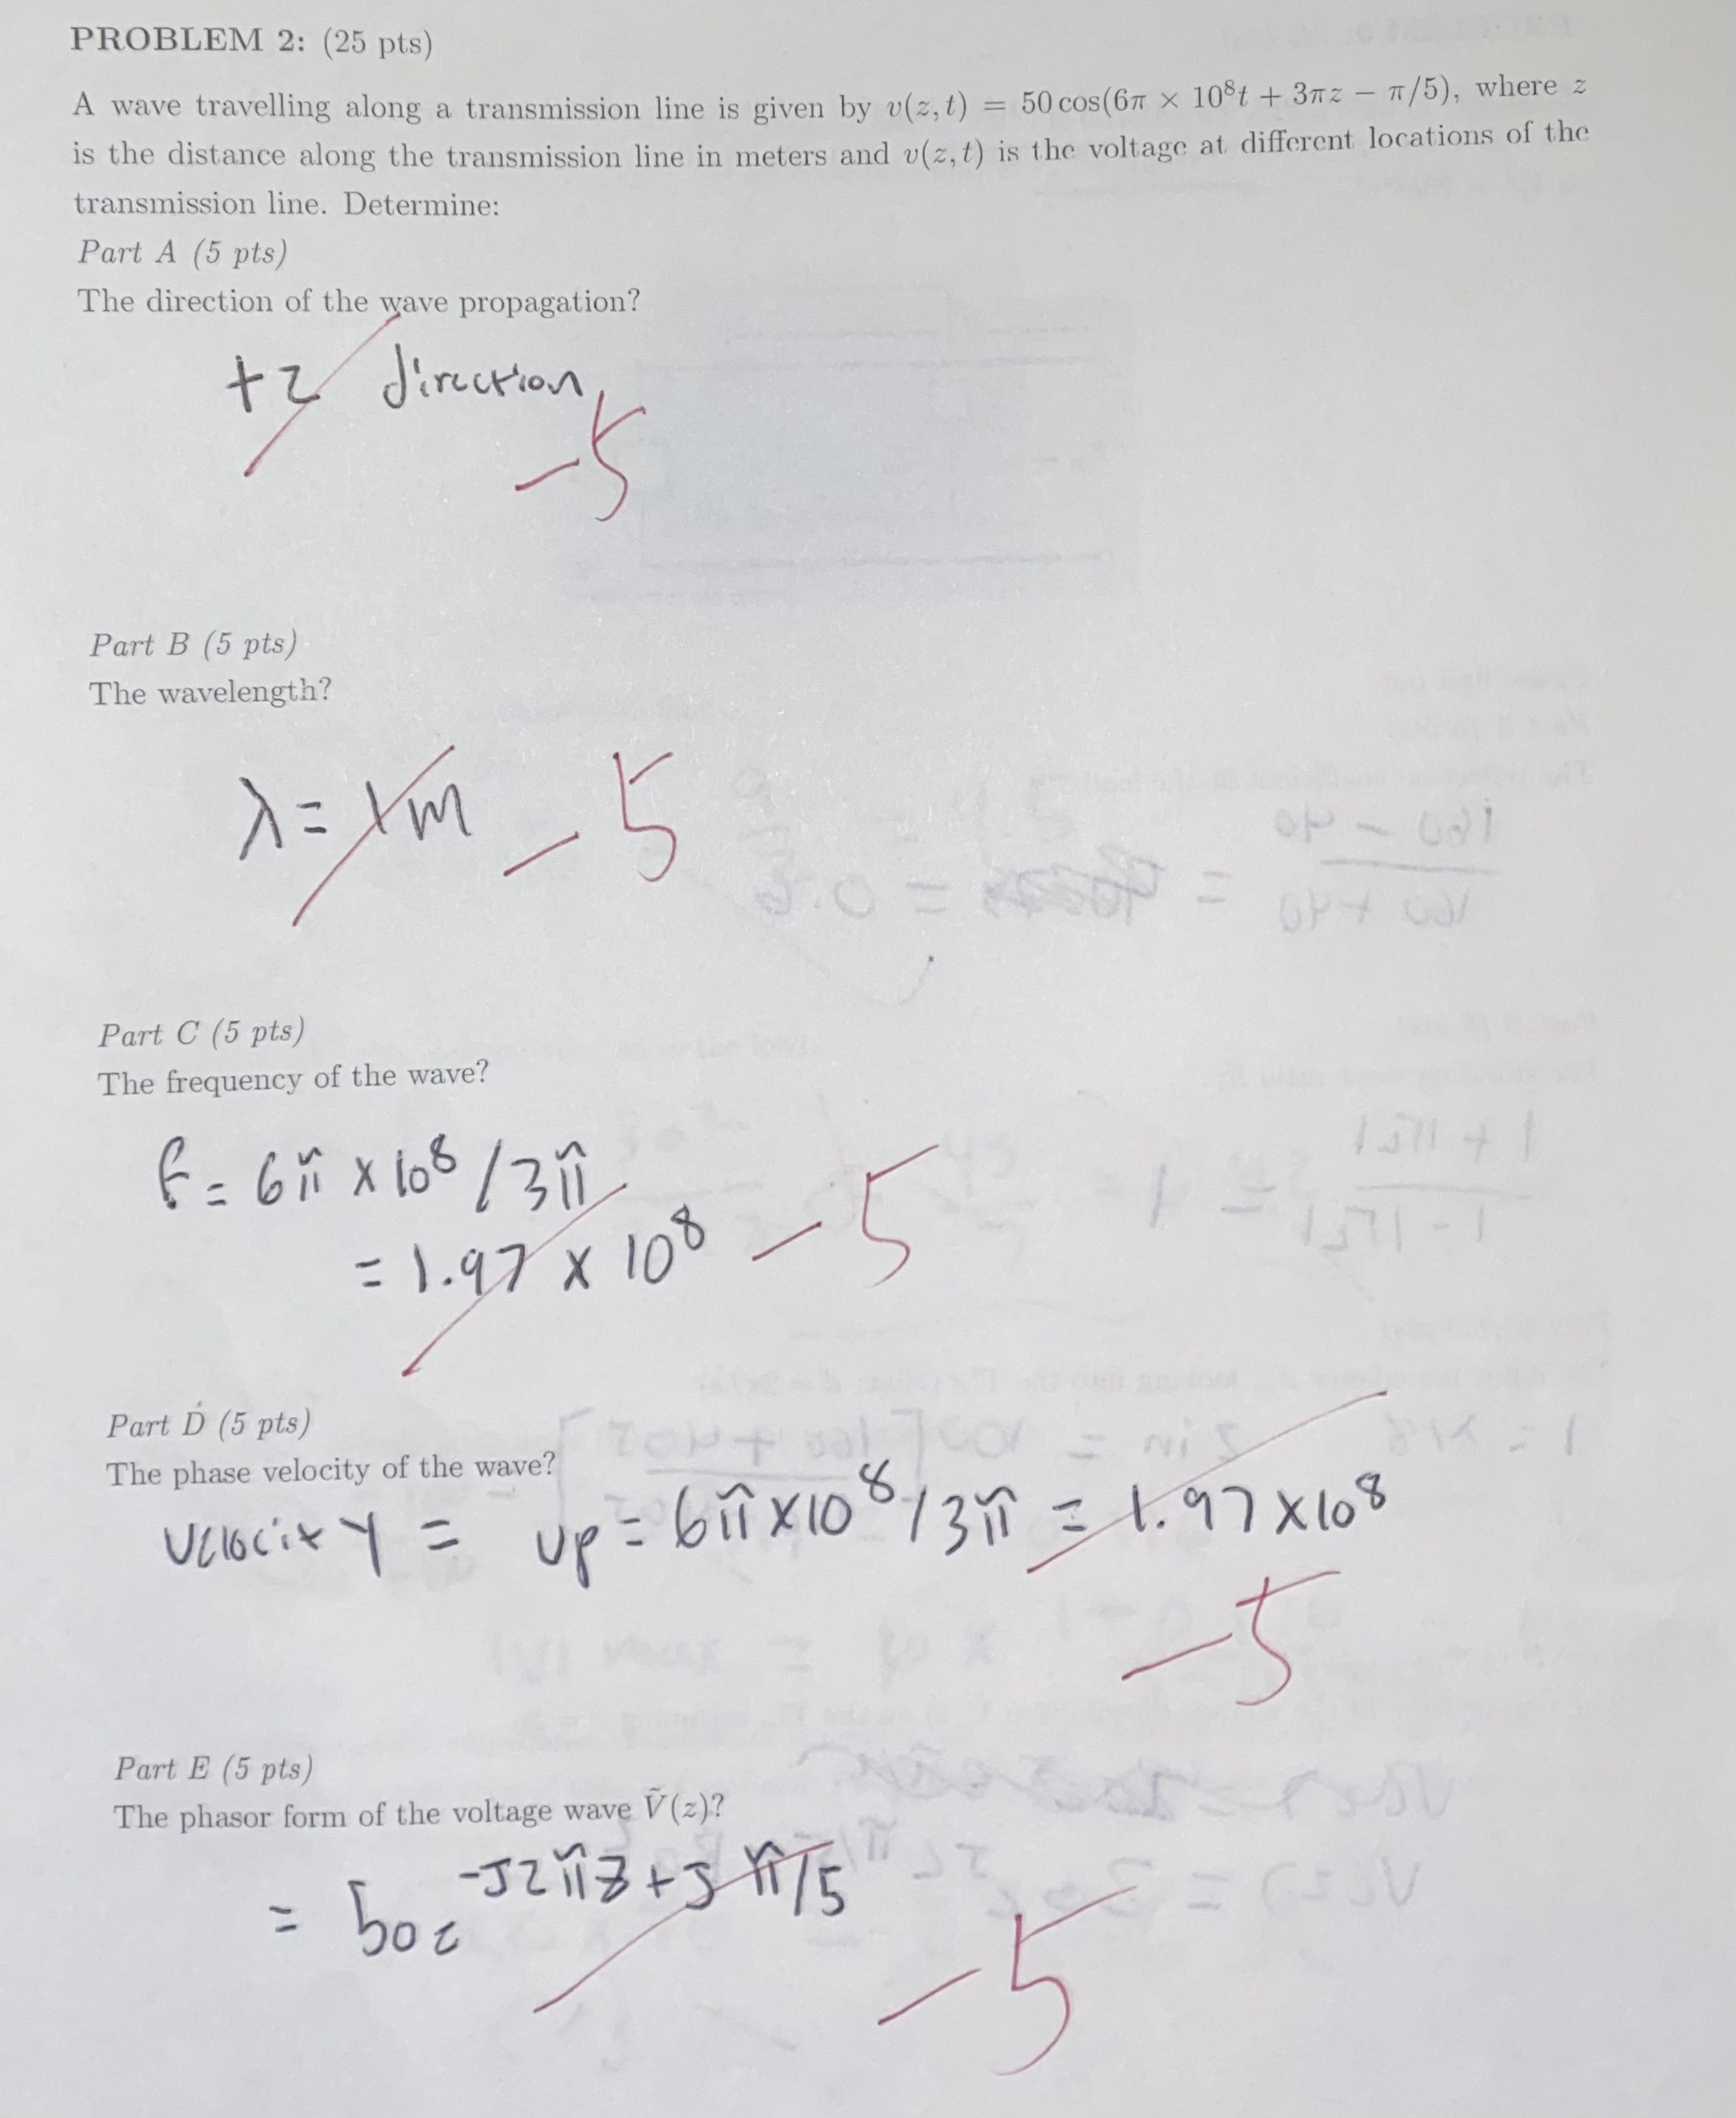 PROBLEM 2: (25 pts)
A wave travelling along a transmission line is given by v(z, t) = 50 cos(6π × 10⁸t + 3πz − π/5), where z
is the distance along the transmission line in meters and v(z, t) is the voltage at different locations of the
transmission line. Determine:
Part A (5 pts)
The direction of the wave propagation?
+z direction
−5
Part B (5 pts)
The wavelength?
λ = 1m −5
Part C (5 pts)
The frequency of the wave?
f = 6π × 10⁸ / 3π
= 1.97 × 10⁸ −5
Part D (5 pts)
The phase velocity of the wave?
velocity = up = 6π × 10⁸ / 3π = 1.97 × 10⁸
−5
Part E (5 pts)
The phasor form of the voltage wave Ṽ(z)?
= 50e^(−J2πz + J π/5)
−5